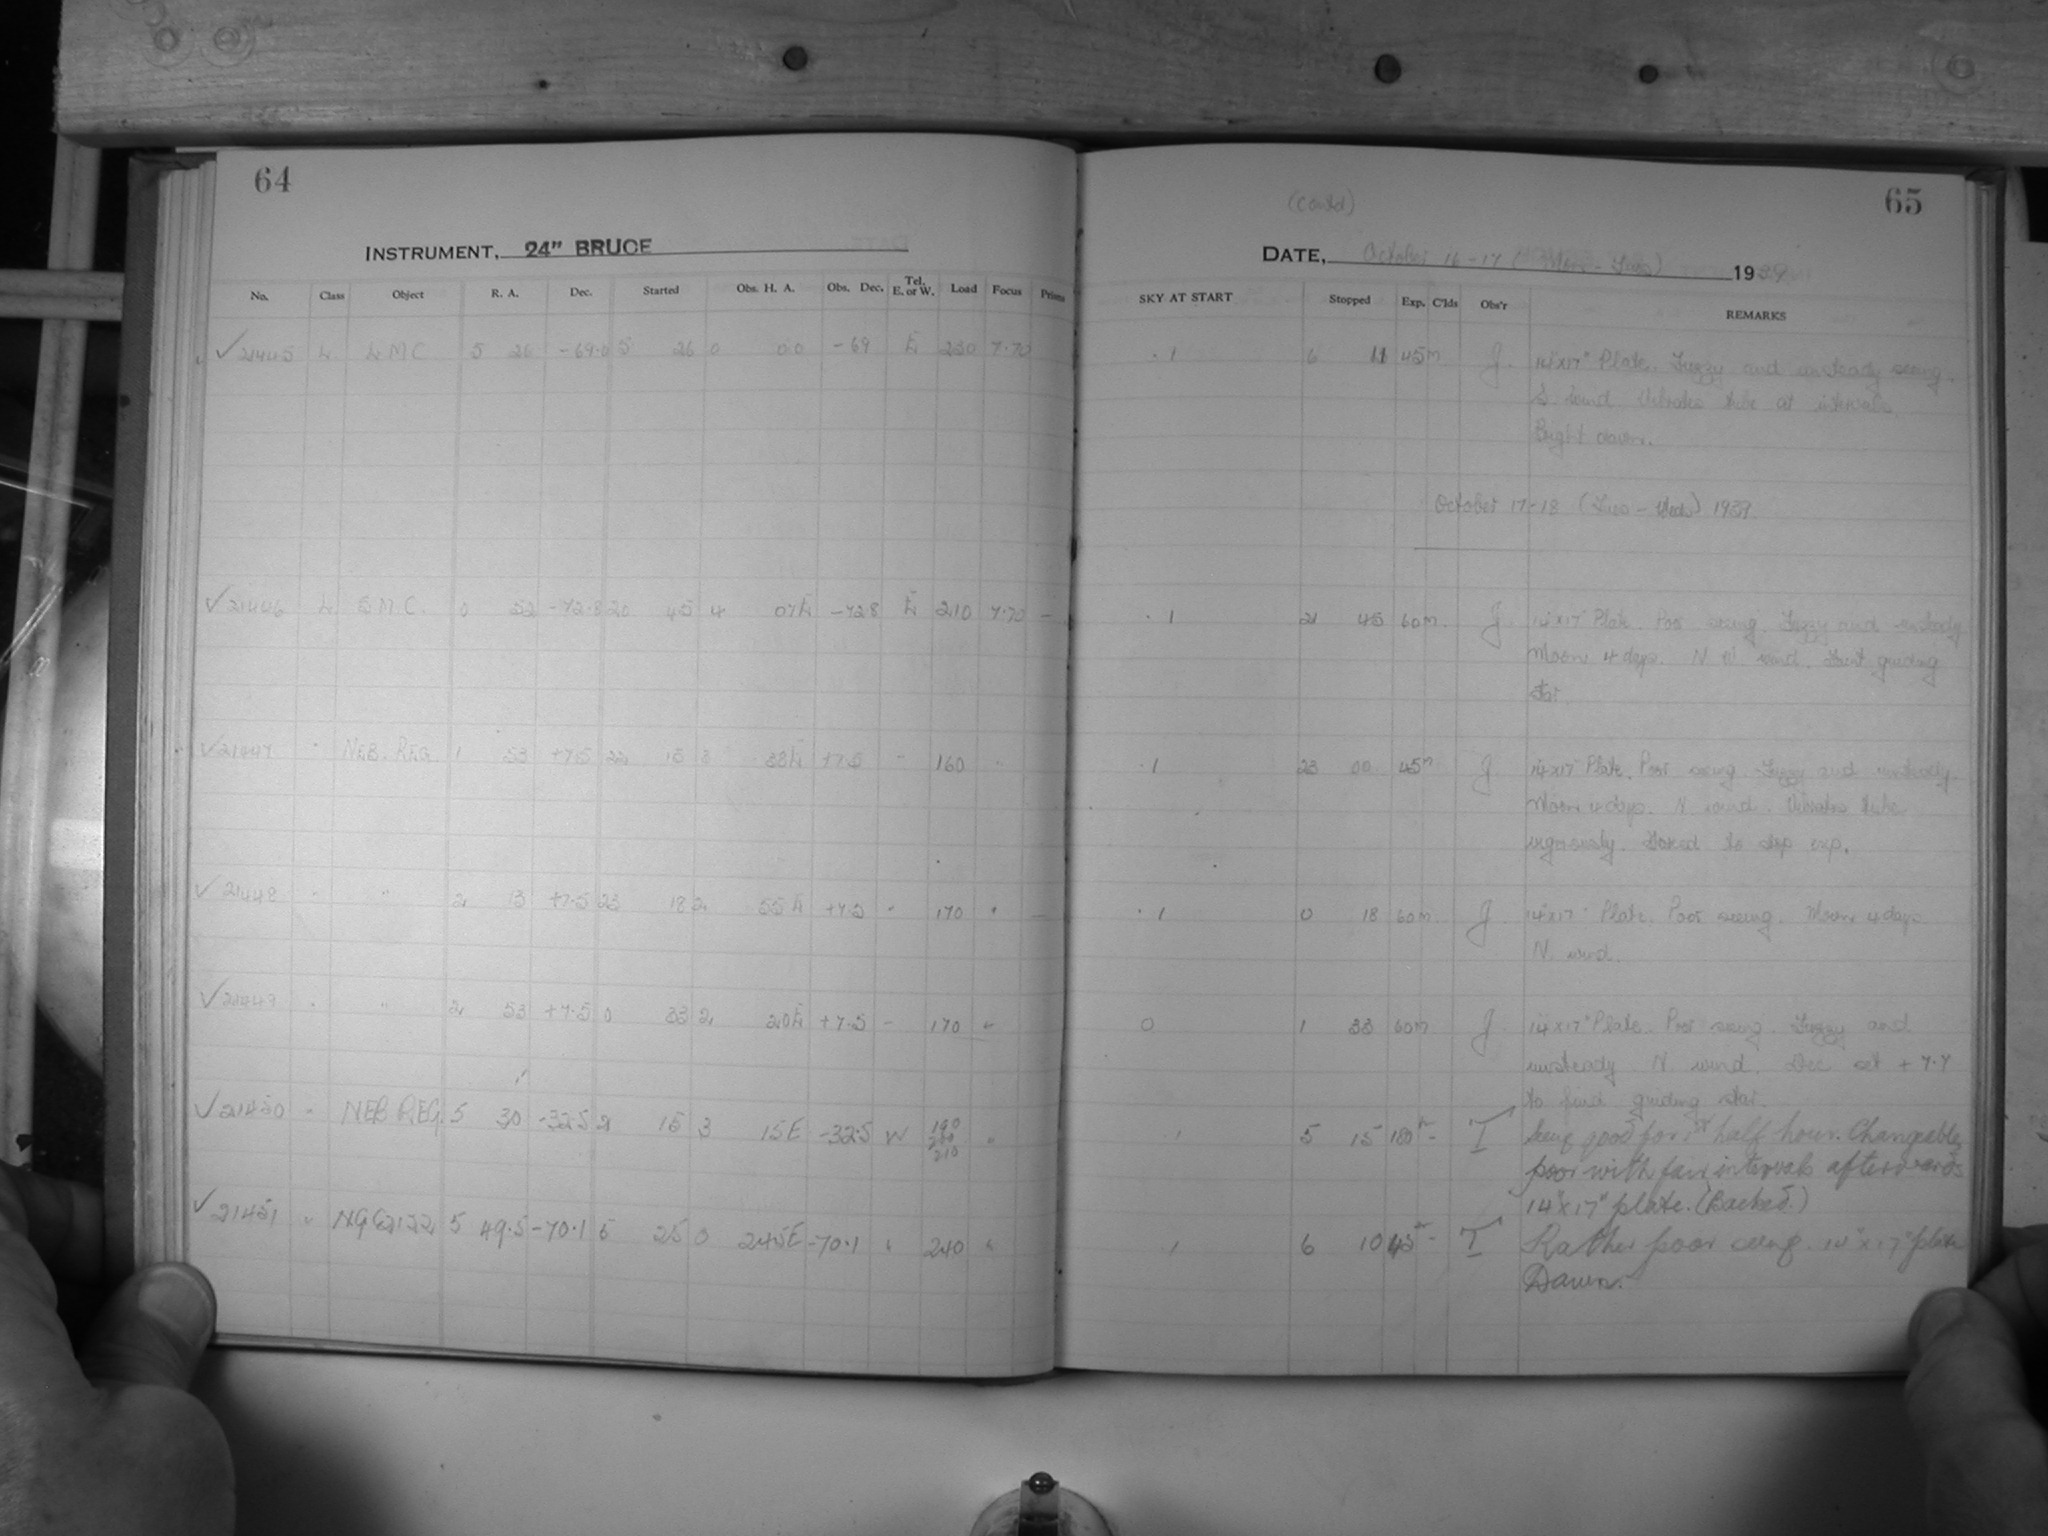 64
INSTRUMENT, 24" BRUCE
No. Class Object R. A. Dec. Started Obs. H. A. Obs. Dec. Tel. E. or W. Load Focus Prism
✓ 21445 L LMC 5 26 -69.0 5 26 0 00 -69 E 230 7.70
✓ 21446 L SMC. 0 52 -72.8 20 45 4 07E -72.8 E 210 7.70 -
✓ 21447 " NEB. REG. 1 53 +7.5 22 15 3 38E +7.5 " 160 "
✓ 21448 " " 2 13 +7.5 23 18 2 55E +7.5 " 170 "
✓ 21449 " " 2 53 +7.5 0 33 2 20E +7.5 " 170 "
✓ 21450 " NEB REG. 5 30 -32.5 2 15 3 15E -32.5 W 190
200
210
✓ 21451 " NGC2122 5 49.5 -70.1 5 25 0 24.5E -70.1 " 240 "
(Contd)
65
DATE, October 16-17 (Mon - Tues) 1939
SKY AT START Stopped Exp. C'lds Obs'r REMARKS
.1 6 11 45m J. 14"x17" Plate. Fuzzy and unsteady seeing.
S. wind vibrates tube at intervals
Bright dawn.
October 17-18 (Tues - Wed) 1939
.1 21 45 60m. J. 14"x17" Plate. Poor seeing. Fuzzy and unsteady
Moon 4 days. N W. wind. Faint guiding
star.
.1 23 00 45m J. 14"x17" Plate. Poor seeing. Fuzzy and unsteady
Moon 4 days. N. wind. Vibrates tube
vigorously. Forced to stop exp.
.1 0 18 60m. J. 14"x17" Plate. Poor seeing. Moon 4 days
N. wind.
0 1 33 60m J. 14"x17" Plate. Poor seeing. Fuzzy and
unsteady N. wind. Dec set +7.7
to find guiding star.
.1 5 15 180m - T Seeing good for 1st half hour. Changeable,
poor with fair intervals afterwards
14"x17" plate. (Backed.)
.1 6 10 45m - T Rather poor seeing. 14"x17" plate
Dawn.